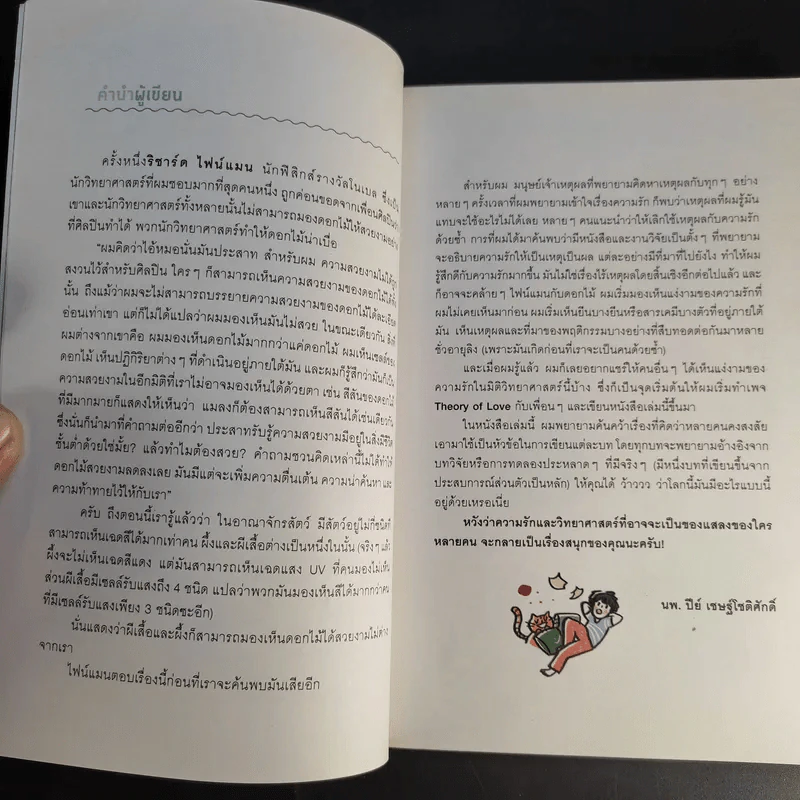 คำนำผู้เขียน
ครั้งหนึ่งริชาร์ด ไฟน์แมน นักฟิสิกส์รางวัลโนเบล ซึ่งเป็น
นักวิทยาศาสตร์ที่ผมชอบมากที่สุดคนหนึ่ง ถูกค่อนขอดจากเพื่อนศิลปินว่า
เขาและนักวิทยาศาสตร์ทั้งหลายนั้นไม่สามารถมองดอกไม้ให้สวยงามอย่าง
ที่ศิลปินทำได้ พวกนักวิทยาศาสตร์ทำให้ดอกไม้น่าเบื่อ
"ผมคิดว่าไอ้หมอนั่นมันประสาท สำหรับผม ความสวยงามไม่ได้ถูก
สงวนไว้สำหรับศิลปิน ใครๆ ก็สามารถเห็นความสวยงามของดอกไม้ได้ทั้ง
นั้น ถึงแม้ว่าผมจะไม่สามารถบรรยายความสวยงามของดอกไม้ได้ละเอียด
อ่อนเท่าเขา แต่ก็ไม่ได้แปลว่าผมมองเห็นมันไม่สวย ในขณะเดียวกัน สิ่งที่
ผมต่างจากเขาคือ ผมมองเห็นดอกไม้มากกว่าแค่ดอกไม้ ผมเห็นเซลล์ของ
ดอกไม้ เห็นปฏิกิริยาต่างๆ ที่ดำเนินอยู่ภายใต้มัน และผมก็รู้สึกว่ามันก็เป็น
ความสวยงามในอีกมิติที่เราไม่อาจมองเห็นได้ด้วยตา เช่น สีสันของดอกไม้
ที่มีมากมายก็แสดงให้เห็นว่า แมลงก็ต้องสามารถเห็นสีสันได้เช่นเดียวกัน
ซึ่งนั่นก็นำมาที่คำถามต่ออีกว่า ประสาทรับรู้ความสวยงามมีอยู่ในสิ่งมีชีวิต
ชั้นต่ำด้วยใช่มั้ย? แล้วทำไมต้องสวย? คำถามชวนคิดเหล่านี้ไม่ได้ทำให้
ดอกไม้สวยงามลดลงเลย มันมีแต่จะเพิ่มความตื่นเต้น ความน่าค้นหา และ
ความท้าทายไว้ให้กับเรา"
ครับ ถึงตอนนี้เรารู้แล้วว่า ในอาณาจักรสัตว์ มีสัตว์อยู่ไม่กี่ชนิดที่
สามารถเห็นเฉดสีได้มากเท่าคน ผึ้งและผีเสื้อต่างเป็นหนึ่งในนั้น (จริงๆ แล้ว
ผึ้งจะไม่เห็นเฉดสีแดง แต่มันสามารถเห็นเฉดแสง UV ที่คนมองไม่เห็น
ส่วนผีเสื้อมีเซลล์รับแสงถึง 4 ชนิด แปลว่าพวกมันมองเห็นสีได้มากกว่าคน
ที่มีเซลล์รับแสงเพียง 3 ชนิดซะอีก)
นั่นแสดงว่าผีเสื้อและผึ้งก็สามารถมองเห็นดอกไม้ได้สวยงามไม่ต่าง
จากเรา
ไฟน์แมนตอบเรื่องนี้ก่อนที่เราจะค้นพบมันเสียอีก
สำหรับผม มนุษย์เจ้าเหตุผลที่พยายามคิดหาเหตุผลกับทุกๆ อย่าง
หลายๆ ครั้งเวลาที่ผมพยายามเข้าใจเรื่องความรัก ก็พบว่าเหตุผลที่ผมรู้มัน
แทบจะใช้อะไรไม่ได้เลย หลายๆ คนแนะนำว่าให้เลิกใช้เหตุผลกับความรัก
ด้วยซ้ำ การที่ผมได้มาค้นพบว่ามีหนังสือและงานวิจัยเป็นตั้งๆ ที่พยายาม
จะอธิบายความรักให้เป็นเหตุเป็นผล แต่ละอย่างมีที่มาที่ไปยังไง ทำให้ผม
รู้สึกดีกับความรักมากขึ้น มันไม่ใช่เรื่องไร้เหตุผลโดยสิ้นเชิงอีกต่อไปแล้ว และ
ก็อาจจะคล้ายๆ ไฟน์แมนกับดอกไม้ ผมเริ่มมองเห็นแง่งามของความรักที่
ผมไม่เคยเห็นมาก่อน ผมเริ่มเห็นยีนบางยีนหรือสารเคมีบางตัวที่อยู่ภายใต้
มัน เห็นเหตุผลและที่มาของพฤติกรรมบางอย่างที่สืบทอดต่อกันมาหลาย
ชั่วอายุลิง (เพราะมันเกิดก่อนที่เราจะเป็นคนด้วยซ้ำ)
และเมื่อผมรู้แล้ว ผมก็เลยอยากแชร์ให้คนอื่นๆ ได้เห็นแง่งามของ
ความรักในมิติวิทยาศาสตร์นี้บ้าง ซึ่งก็เป็นจุดเริ่มต้นให้ผมเริ่มทำเพจ
Theory of Love กับเพื่อนๆ และเขียนหนังสือเล่มนี้ขึ้นมา
ในหนังสือเล่มนี้ ผมพยายามค้นคว้าเรื่องที่คิดว่าหลายคนคงสงสัย
เอามาใช้เป็นหัวข้อในการเขียนแต่ละบท โดยทุกบทจะพยายามอ้างอิงจาก
บทวิจัยหรือการทดลองประหลาดๆ ที่มีจริงๆ (มีหนึ่งบทที่เขียนขึ้นจาก
ประสบการณ์ส่วนตัวเป็นหลัก) ให้คุณได้ ว้าววว ว่าโลกนี้มันมีอะไรแบบนี้
อยู่ด้วยเหรอเนี่ย
หวังว่าความรักและวิทยาศาสตร์ที่อาจจะเป็นของแสลงของใคร
หลายคน จะกลายเป็นเรื่องสนุกของคุณนะครับ!
นพ. ปีย์ เชษฐ์โชติศักดิ์